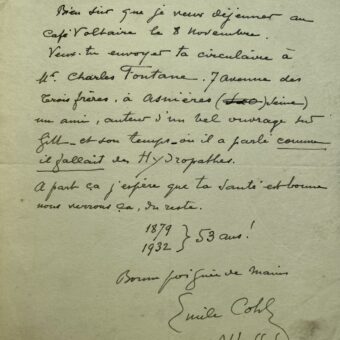 Bien sûr que je veux déjeuner au
Café Voltaire le 8 Novembre.
Veux-tu envoyer ta circulaire à
Mr. Charles Fontane. 7 avenue des
Trois frères, à Asnières (Seine)
un ami, auteur d'un bel ouvrage sur
Gill et son temps où il a parlé comme
il fallait des Hydropathes.
A part ça j'espère que ta santé est bonne
nous verrons ça, du reste.
1879
1932 } 53 ans!
Bonne poignée de mains
Emile Cohl